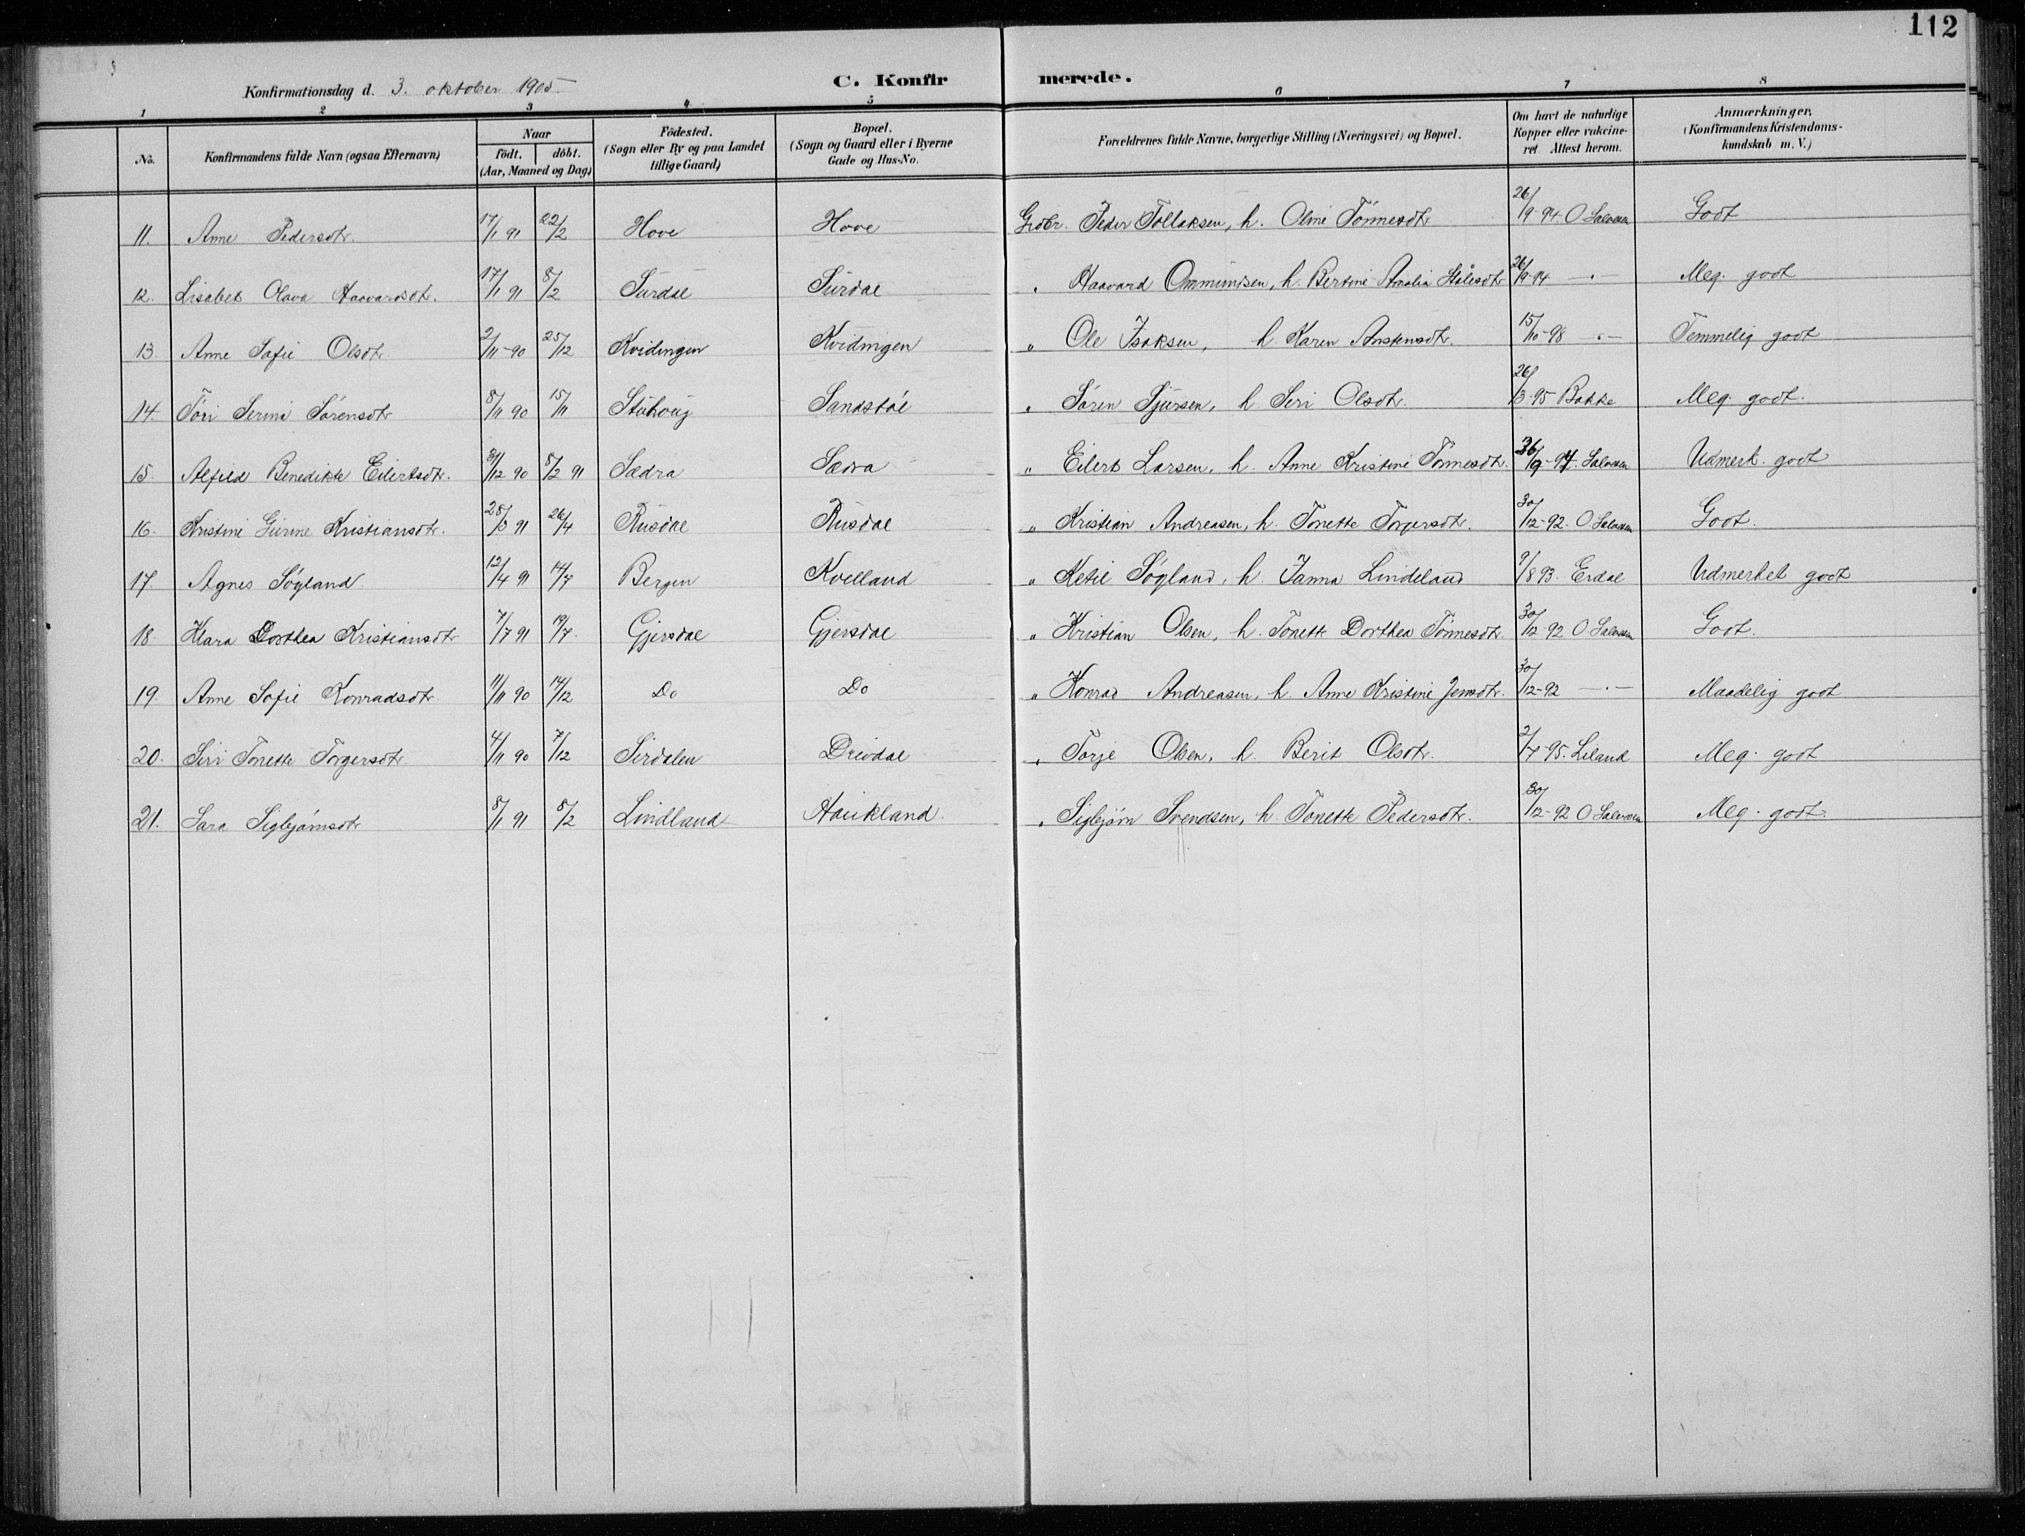 112
Konfirmationsdag d. 3. oktober 1905 C. Konfirmerede.
1 2 3 4 5 6 7 8
No. Konfirmandens fulde Navn (ogsaa Efternavn) Naar födt. döbt. (Aar, Maaned og Dag) Födested. (Sogn eller By og paa Landet tillige Gaard) Bopæl. (Sogn og Gaard eller i Byerne Gade og Hus-No. Forældrenes fulde Navne, borgerlige Stilling (Næringsvei) og Bopæl. Om havt de naturlige Kopper eller vakcineret Attest herom. Anmærkninger. (Konfirmandens Kristendomskundskab m. V.)
11. Anne Pedersdtr. 17/1 91 22/2 Hove Hove Grdbr. Peder Tollaksen, h. Oline Tönnesdtr 26/9-94 O Salvesen Godt
12. Lisabet Olava Haavardsdtr. 17/1 91 8/2 Surdal Surdal " Haavard Ommundsen, h. Bertine Amalia Ståledtr 26/9-94 —"— Meg. godt
13. Anne Sofie Olsdtr 2/11-90 25/12 Kvidingen Kvidingen " Ole Isaksen, h. Karen Anstensdtr. 15/10-98 —"— Temmelig godt
14. Töri Serine Sörensdtr 8/11 90 15/11 Sandstöl " Sören Sjursen, h. Siri Olsdtr. 26/3-95 Bakke Meg. godt.
15. Alfild Benedikte Eilertsdtr. 31/12 90 8/2 91 Sædra Sædra " Eilert Larsen, h. Anne Kristine Tönnesdtr. 26/9-94. Salvesen Udmerk. godt
16. Kristine Gurine Kristiansdtr. 28/3 91 26/4 Rusdal Rusdal " Kristian Andreasen, h. Tonette Torgersdtr. 30/12-92. O Salvesen Godt.
17. Agnes Sögland 12/4 91 14/7 Bergen Kvelland " Ketil Sögland, h. Janna Lindeland 9/8 93. Erdal Udmerket godt
18. Klara Dorthea Kristiansdtr 7/7 91 19/7. Gjersdal Gjersdal " Kristian Olsen, h. Tonette Dorthea Tönnesdtr 30/12-92 O Salvesen Godt.
19. Anne Sofie Konradsdtr 11/11 90 14/12 Do Do " Konrad Andreasen, h. Anne Kristine Jensdtr. 30/12-92 —"— Maadelig godt
20. Siri Tonette Torgersdtr. 4/11 90 7/12 Sirdalen Dreidal " Torje Olsen, h. Berit Olsdtr. 2/7-95. Liland Meg. godt
21. Sara Sigbjörnsdtr 8/1 91 8/2 Lindland Haukland. " Sigbjörn Svendsen, h. Tonette Pedersdtr. 30/12-92 O Salvesen Meg. godt.